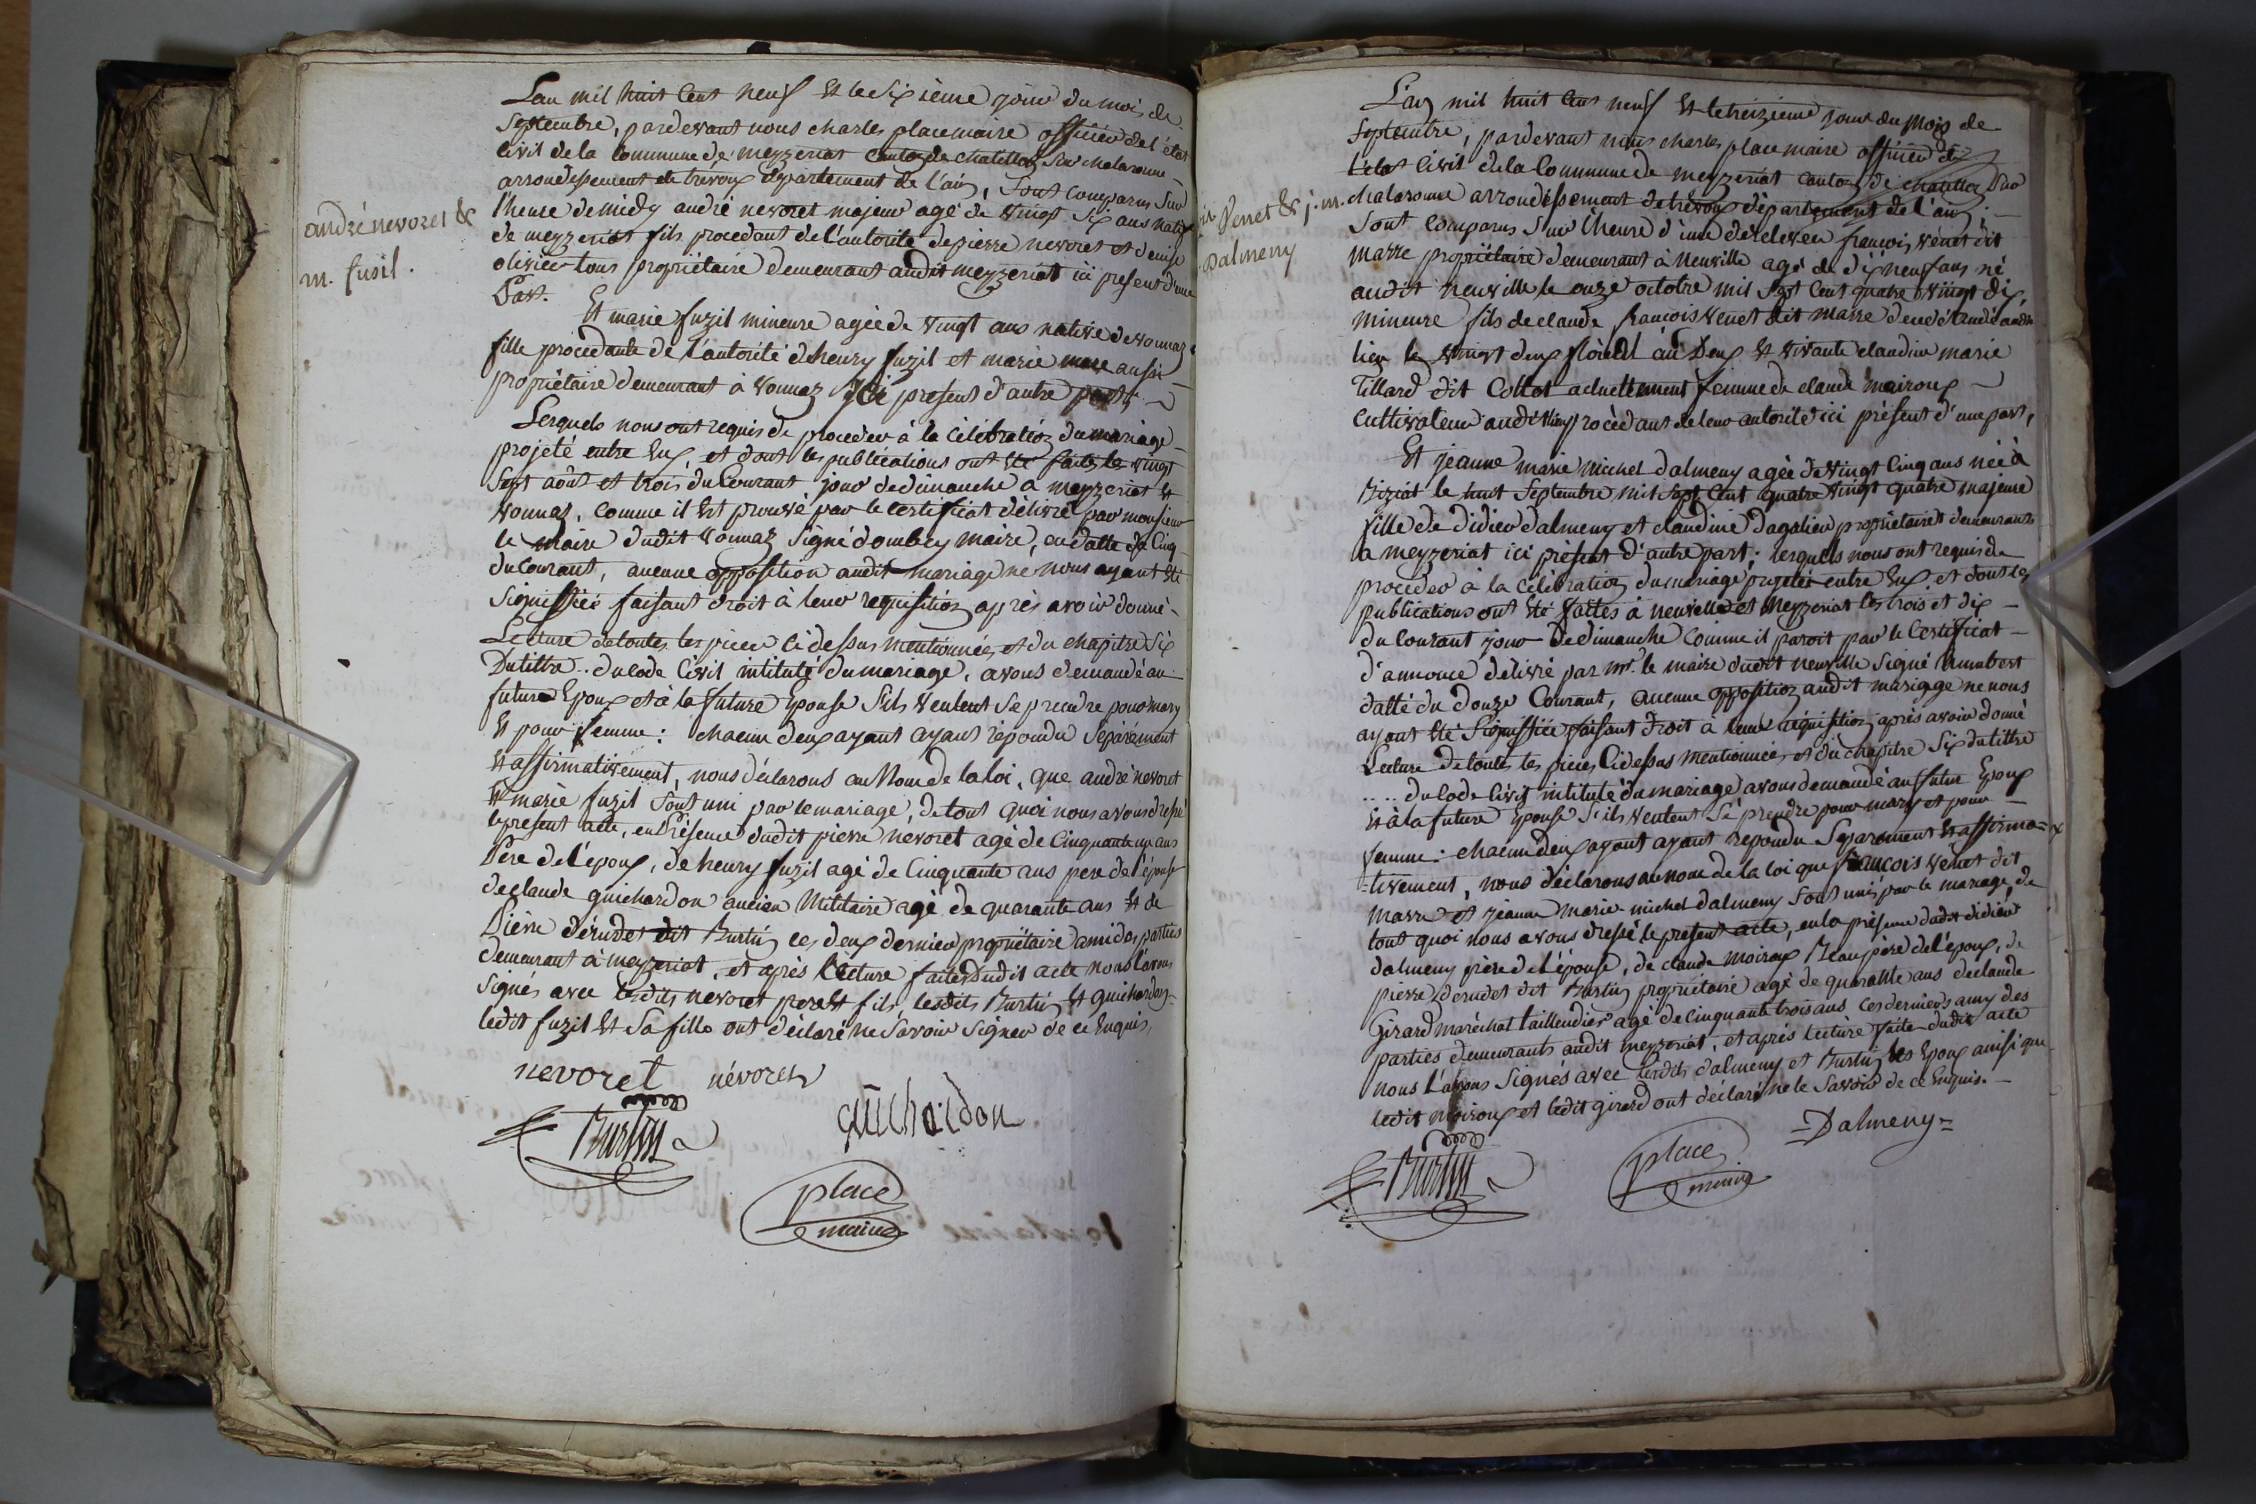 andré nevoret &
m. fusil.
L'an mil huit Cent neuf Et le sixième jour du mois de
Septembre, pardevant nous charles place maire officier de l'état
Civil de la Commune de meyzeriat Canton de chatillon sur chalaronne
arrondissement de trevoux département de l'ain, Sont Comparus Sur
l'heure de midy andré nevoret majeur agé de vingt six ans natif
de meyzeriat fils procedant de l'autorité de pierre nevoret et denise
olivier tous propriétaire demeurant audit meyzeriat ici present d'une
Part.
Et marie fuzil mineure agée de vingt ans native de vonnaz
fille procedante de l'autorité d'henry fuzil et marie aussi
propriétaire demeurant à Vonnaz Ici present d'autre part,
Lesquels nous ont requis de proceder à la Célébration du mariage
projeté entre Eux, et dont les publications ont été faites le vingt
Sept août et trois du Courant jour de dimanche a meyzeriat Et
Vonnaz, Comme il Est prouvé par le Certificat délivré par monsieur
le maire dudit Vonnaz Signé dombey maire, en datte du Cinq
du Courant, aucune opposition audit mariage ne nous ayant été
Signiffiée faisant droit à leur requisition après avoir donné
Lecture de toutes les pieces Ci dessus mentionnées et du chapitre Six
Du titre .. du Code Civil intitulé du mariage, avons demandé au
futur Epoux et à la future Epouse S'ils veulent Se prendre pour mary
Et pour femme: chacun deux ayant ayant répondu Séparément
Et affirmativement, nous déclarons au Nom de la loi, que andré nevoret
Et marie fuzil Sont uni par le mariage, de tout quoi nous avons dressé
le present acte, en Présence dudit pierre nevoret agé de Cinquante un ans
Père de l'époux, de henry fuzil agé de Cinquante ans pere de l'épouse
de claude guichardon ancien Militaire agé de quarante ans Et de
Pierre dérudet dit Burtin ces deux dernier propriétaire ami des parties
demeurant à meyzeriat, et après lecture faite dudit acte nous l'avons
Signés avec lesdits nevoret pere Et fils, lesdits Burtin Et guichardon
ledit fuzil Et Sa fille ont déclaré ne Savoir Signer de ce Enquis,
nevoret névoret
Burtin guichardon
place
maire
Venet & j. m.
Dalmeny
L'an mil huit Cent neuf Et le treizieme jour du Mois de
Septembre, pardevant nous charles place maire officier de
l'état Civil de la Commune de meyzeriat Canton de chatillon sur
chalaronne arrondissement de trevoux département de l'ain;
Sont Comparus Sur l'heure d'une de relevée françois vénet dit
marre propriétaire demeurant à Neuville agé de dix neuf ans né
audit neuville le onze octobre mil Sept Cent quatre vingt dix,
mineure fils de claude françois Venet dit marre décédé audit
lieu le vingt deux floréal an Deux Et vivante claudine marie
Tillard dit Collot actuellement femme de claude moiroux
Cultivateur audit lieu procèdant de leur autorité ici présent d'une part,
Et jeanne marie michel dalmeny agée de vingt Cinq ans née à
Biziat le huit Septembre mil Sept Cent quatre vingt quatre majeure
fille de didier dalmeny et claudine dagalier propriétaires demeurants
a meyzeriat ici present d'autre part; lesquels nous ont requis de
proceder à la Célébration du mariage projetée entre Eux, et dont les
publications ont été faites à neuville et Meyzeriat les trois et dix
du Courant jour de dimanche Comme il paroit par le Certificat
d'annonce délivré par mr. le maire dudit neuville Signé humbert
datté du douze Courant, aucune opposition audit mariage ne nous
ayant été Signiffiée faisant droit à leur réquisition après avoir donné
Lecture de toutes les pieces Ci dessus mentionnées et du chapitre Six du titre
.... du Code Civil intitulé du mariage avons demandé au futur Epoux
Et à la future Epouse S'ils veulent Se prendre pour mary et pour
femme: chacun deux ayant ayant repondu Séparement Et affirma=
=tivement, nous déclarons au nom de la loi que françois venet dit
marre et jeanne marie michel dalmeny Sont unis par le mariage, de
tout quoi nous avons dressé le present acte, en la présence dudit didier
dalmeny père de l'épouse, de claude moiroux Beau père de l'époux, de
pierre derudet dit Burtin propriétaire agé de quarante ans de claude
Girard maréchal taillendier agé de cinquante trois ans ces derniers amy des
parties demeurants audit meyzeriat, et après lecture faite dudit acte
nous l'avons Signés avec lesdits dalmeny et Burtin les Epoux ainsi que
ledit moiroux et ledit girard ont déclaré ne le Savoir de ce Enquis.
=Dalmeny=
Burtin place
maire